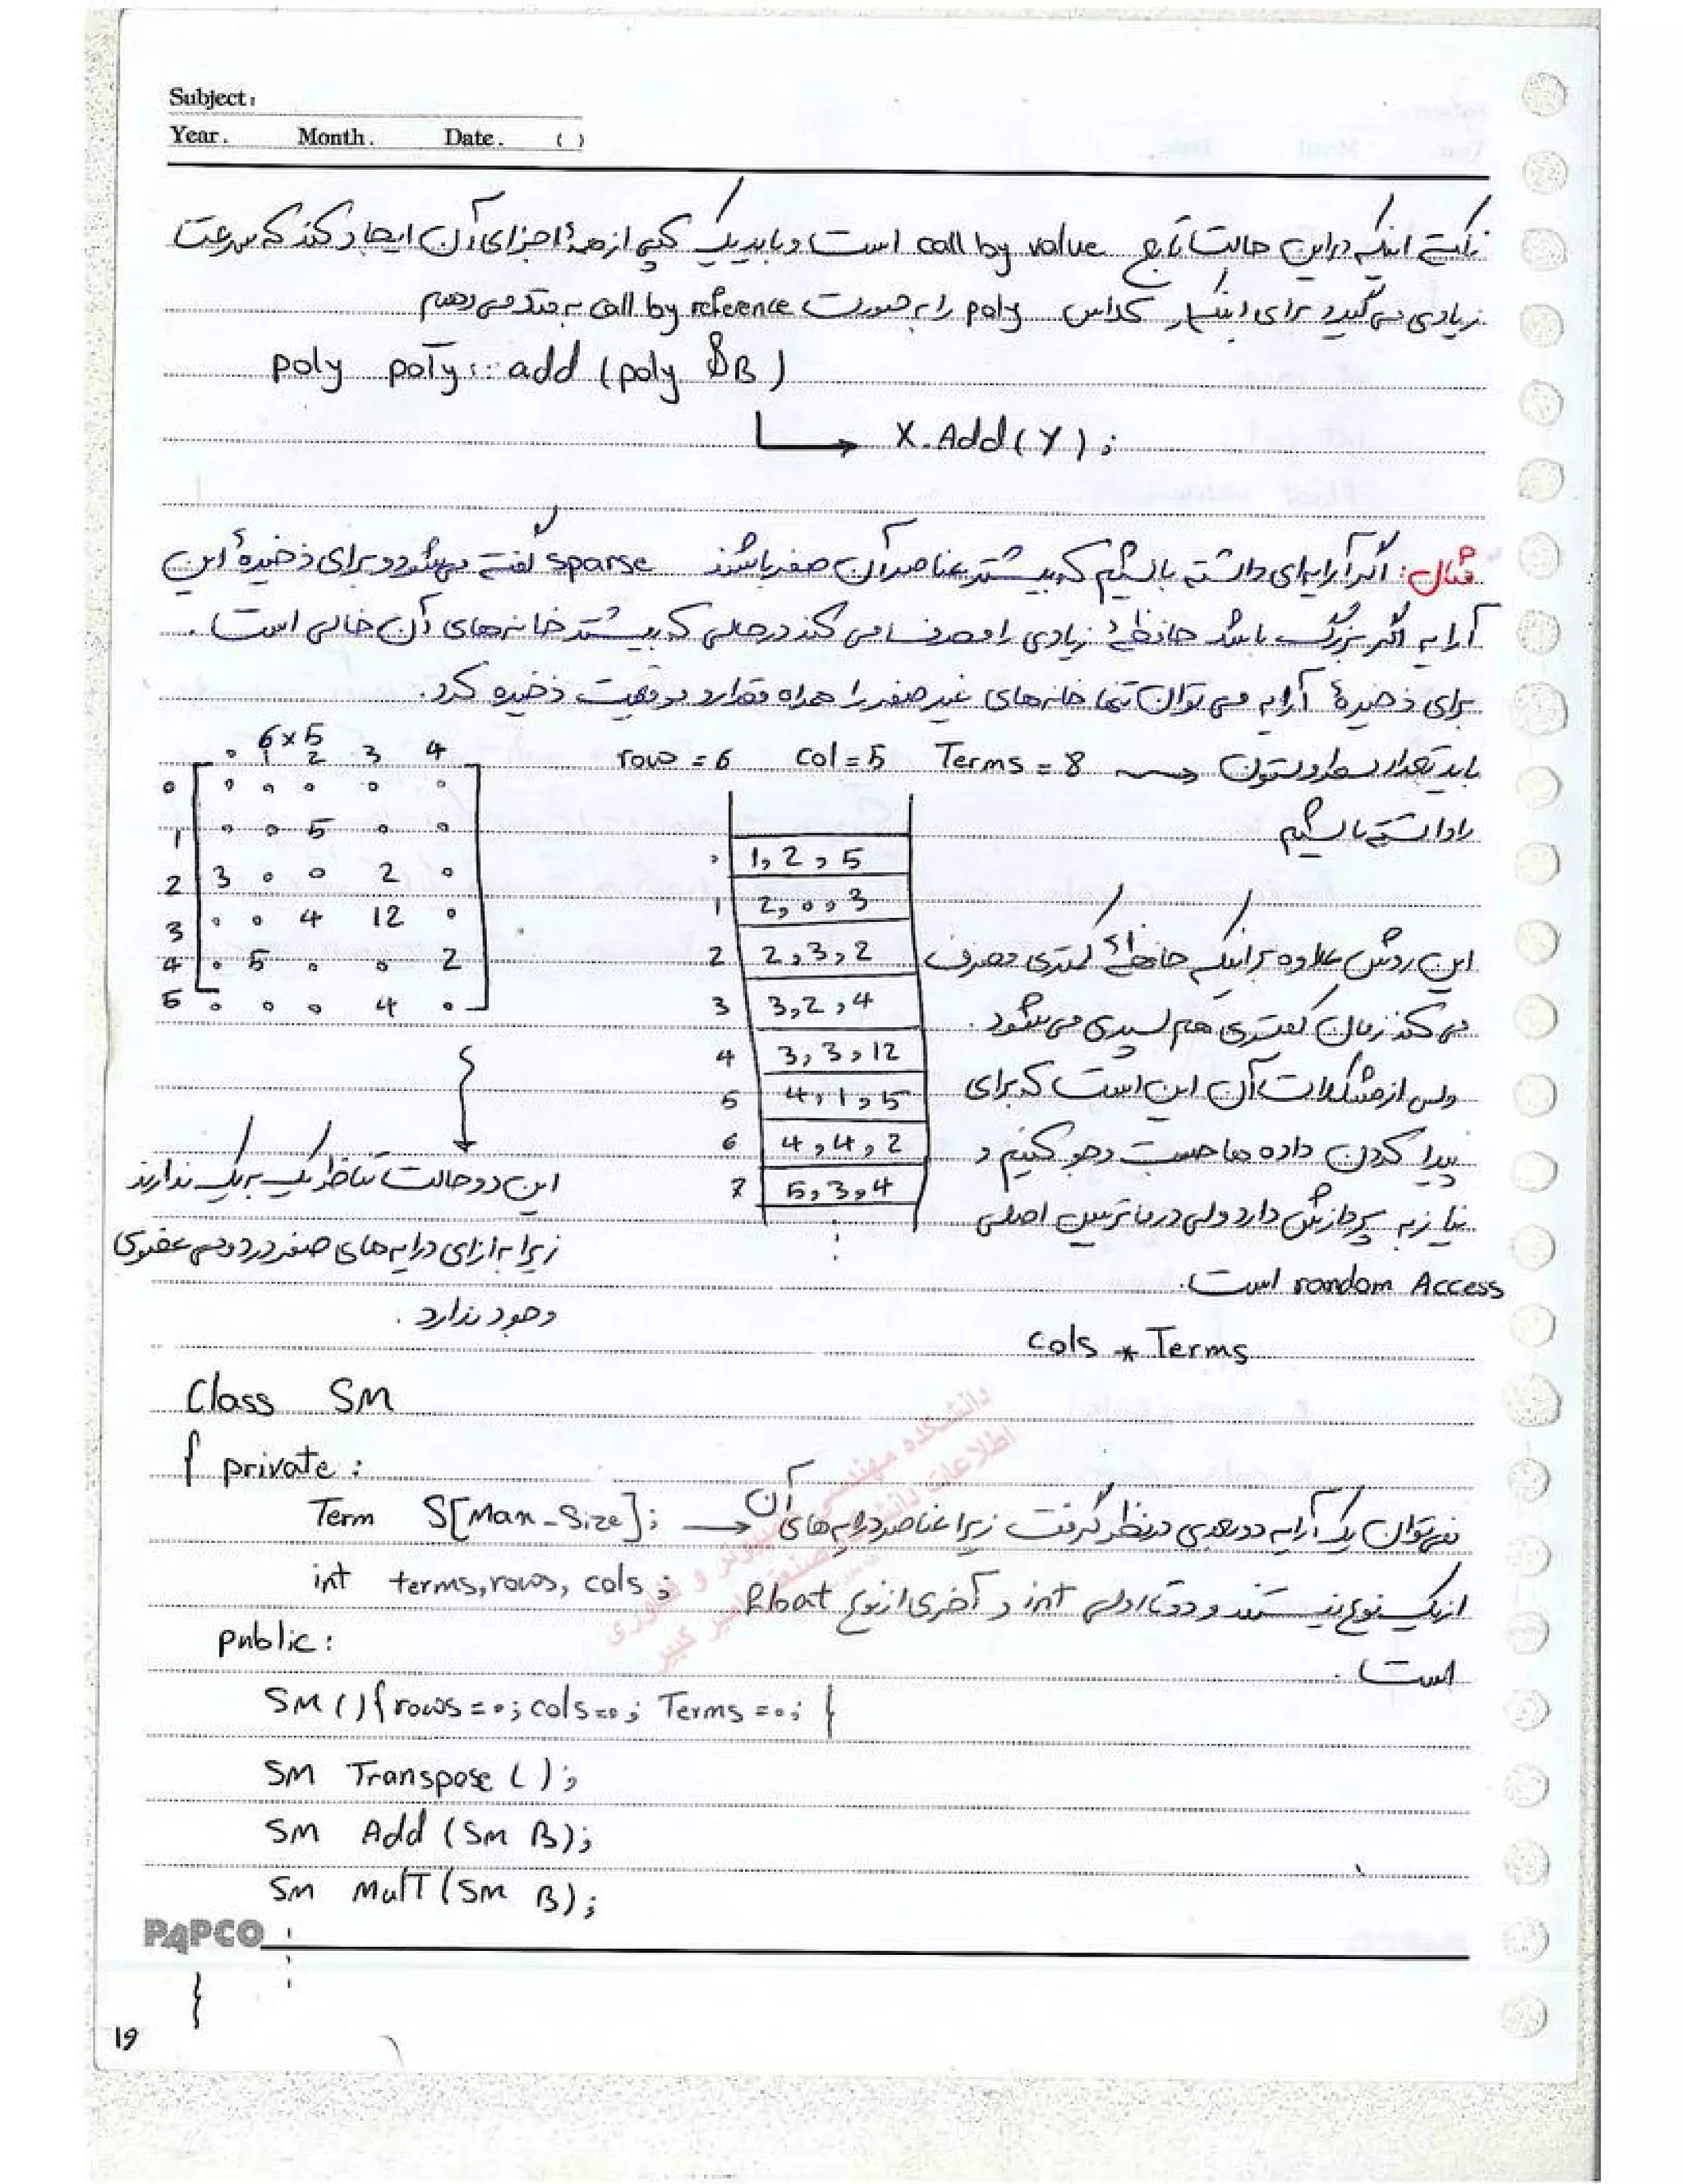 Subject:
Year. Month. Date. ( )
نکته اینکه در این حالت تابع call by value است و باید یک کپی از همهٔ اجزای آن ایجاد کند که سرعت
زیادی می گیرد برای اینکار کلاس poly را به صورت call by reference می دهیم
poly poly :: add (poly &B)
X.Add(Y);
مثال: اگر آرایه ای داشته باشیم که بیشتر عناصر آن صفر باشند sparse گفته میشود و برای ذخیرهٔ این
آرایه اگر بزرگ باشد حافظهٔ زیادی را مصرف می کند در حالی که بیشتر خانه های آن خالی است.
برای ذخیرهٔ آرایه می توان تنها خانه های غیر صفر را همراه مقدار و موقعیت ذخیره کرد.
باید تعداد سطر و ستون Terms = 8 col = 5 rows = 6
را داشته باشیم
6×5
0 1 2 3 4
0 0 0 0 0 0
1 0 0 5 0 0
2 3 0 0 2 0
3 0 0 4 12 0
4 0 5 0 0 2
5 0 0 0 4 0
0 1,2,5
1 2,0,3
2 2,3,2
3 3,2,4
4 3,3,12
5 4,1,5
6 4,4,2
7 5,3,4
این روش علاوه بر اینکه حافظهٔ کمتری مصرف
می کند زمان کمتری هم سپری می شود.
ولی از مشکلات آن این است که برای
پیدا کردن داده ها جست وجو کنیم و
نیاز به پردازش دارد ولی در ماتریس اصلی
random Access است.
cols * Terms
این دو حالت تناظر یک به یک ندارند
زیرا به ازای درایه های صفر در دومی عضوی
وجود ندارد.
Class SM
{ private:
Term S[Max-Size]; نمی توان یک آرایه دو بعدی در نظر گرفت زیرا عناصر درایه های آن
int terms, rows, cols; از یک نوع نیستند و دو تا اولی int و آخری از نوع float
است.
public:
SM(){rows=0; cols=0; Terms=0; }
SM Transpose();
SM Add (SM B);
SM MulT (SM B);
PAPCO
}
19
دانشکده مهندسی کامپیوتر و فناوری
اطلاعات دانشگاه صنعتی امیر کبیر